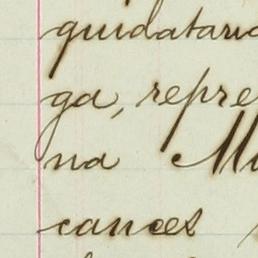 quidatario
ga, repre
na Mu
cances